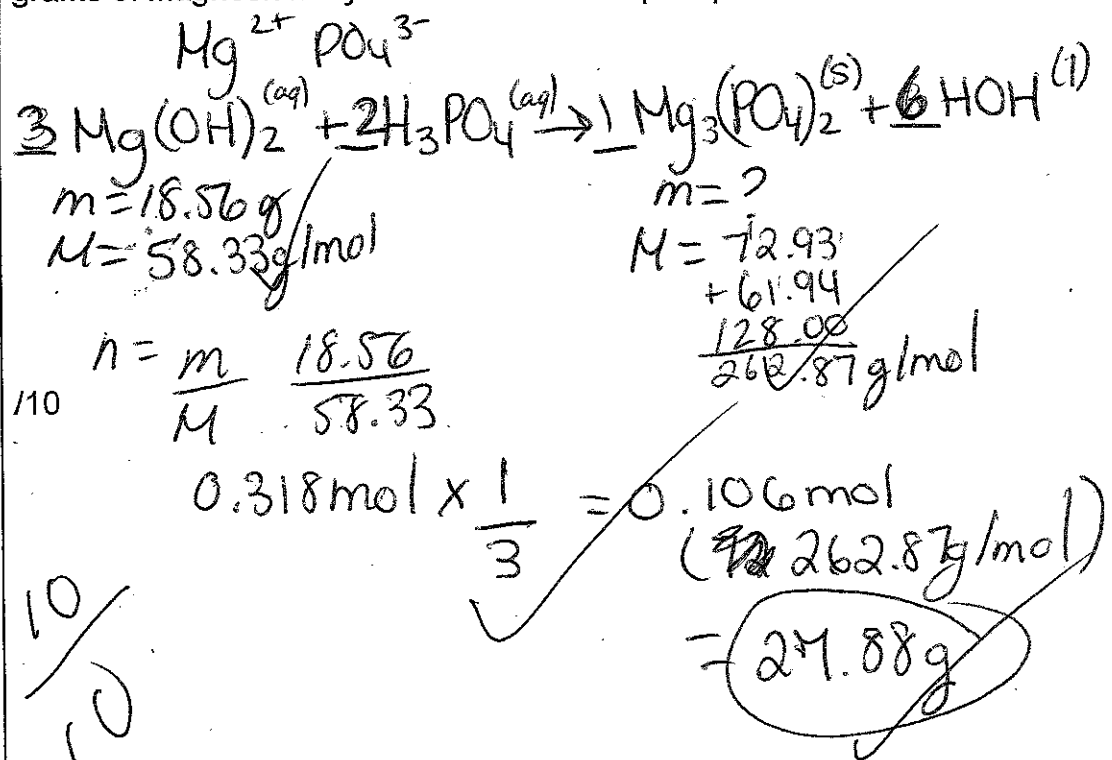 Mg 2+ PO4 3-
3 Mg(OH)2 (aq) + 2H3PO4 (aq) → 1 Mg3(PO4)2 (s) + 6 HOH (l)
m = 18.56 g
M = 58.33g/mol
m = ?
M = 72.93
+ 61.94
128.00
262.87 g/mol
n = m/M 18.56/58.33
/10
0.318 mol x 1/3 = 0.106 mol
( 262.87g/mol)
= 27.88g
10/10